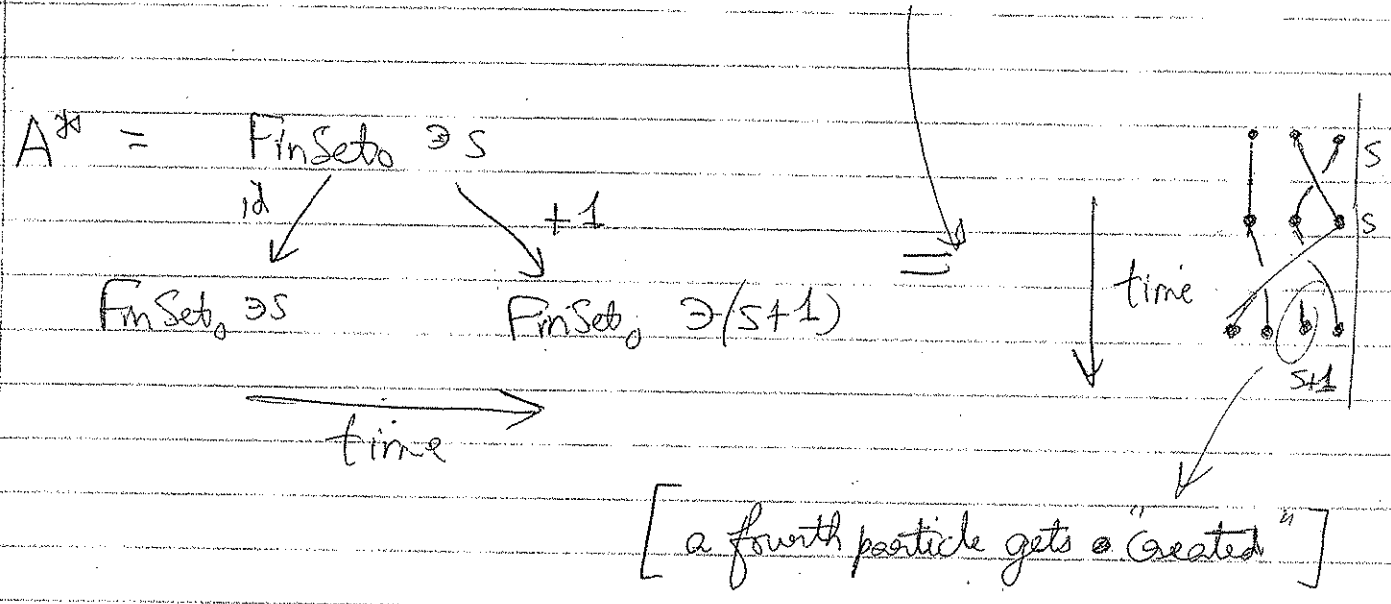 A* = FinSet₀ ∋ S
id +1
FinSet₀ ∋ S FinSet₀ ∋ (S+1)
=
time
time
S
S
S+1
[a fourth particle gets "Created"]